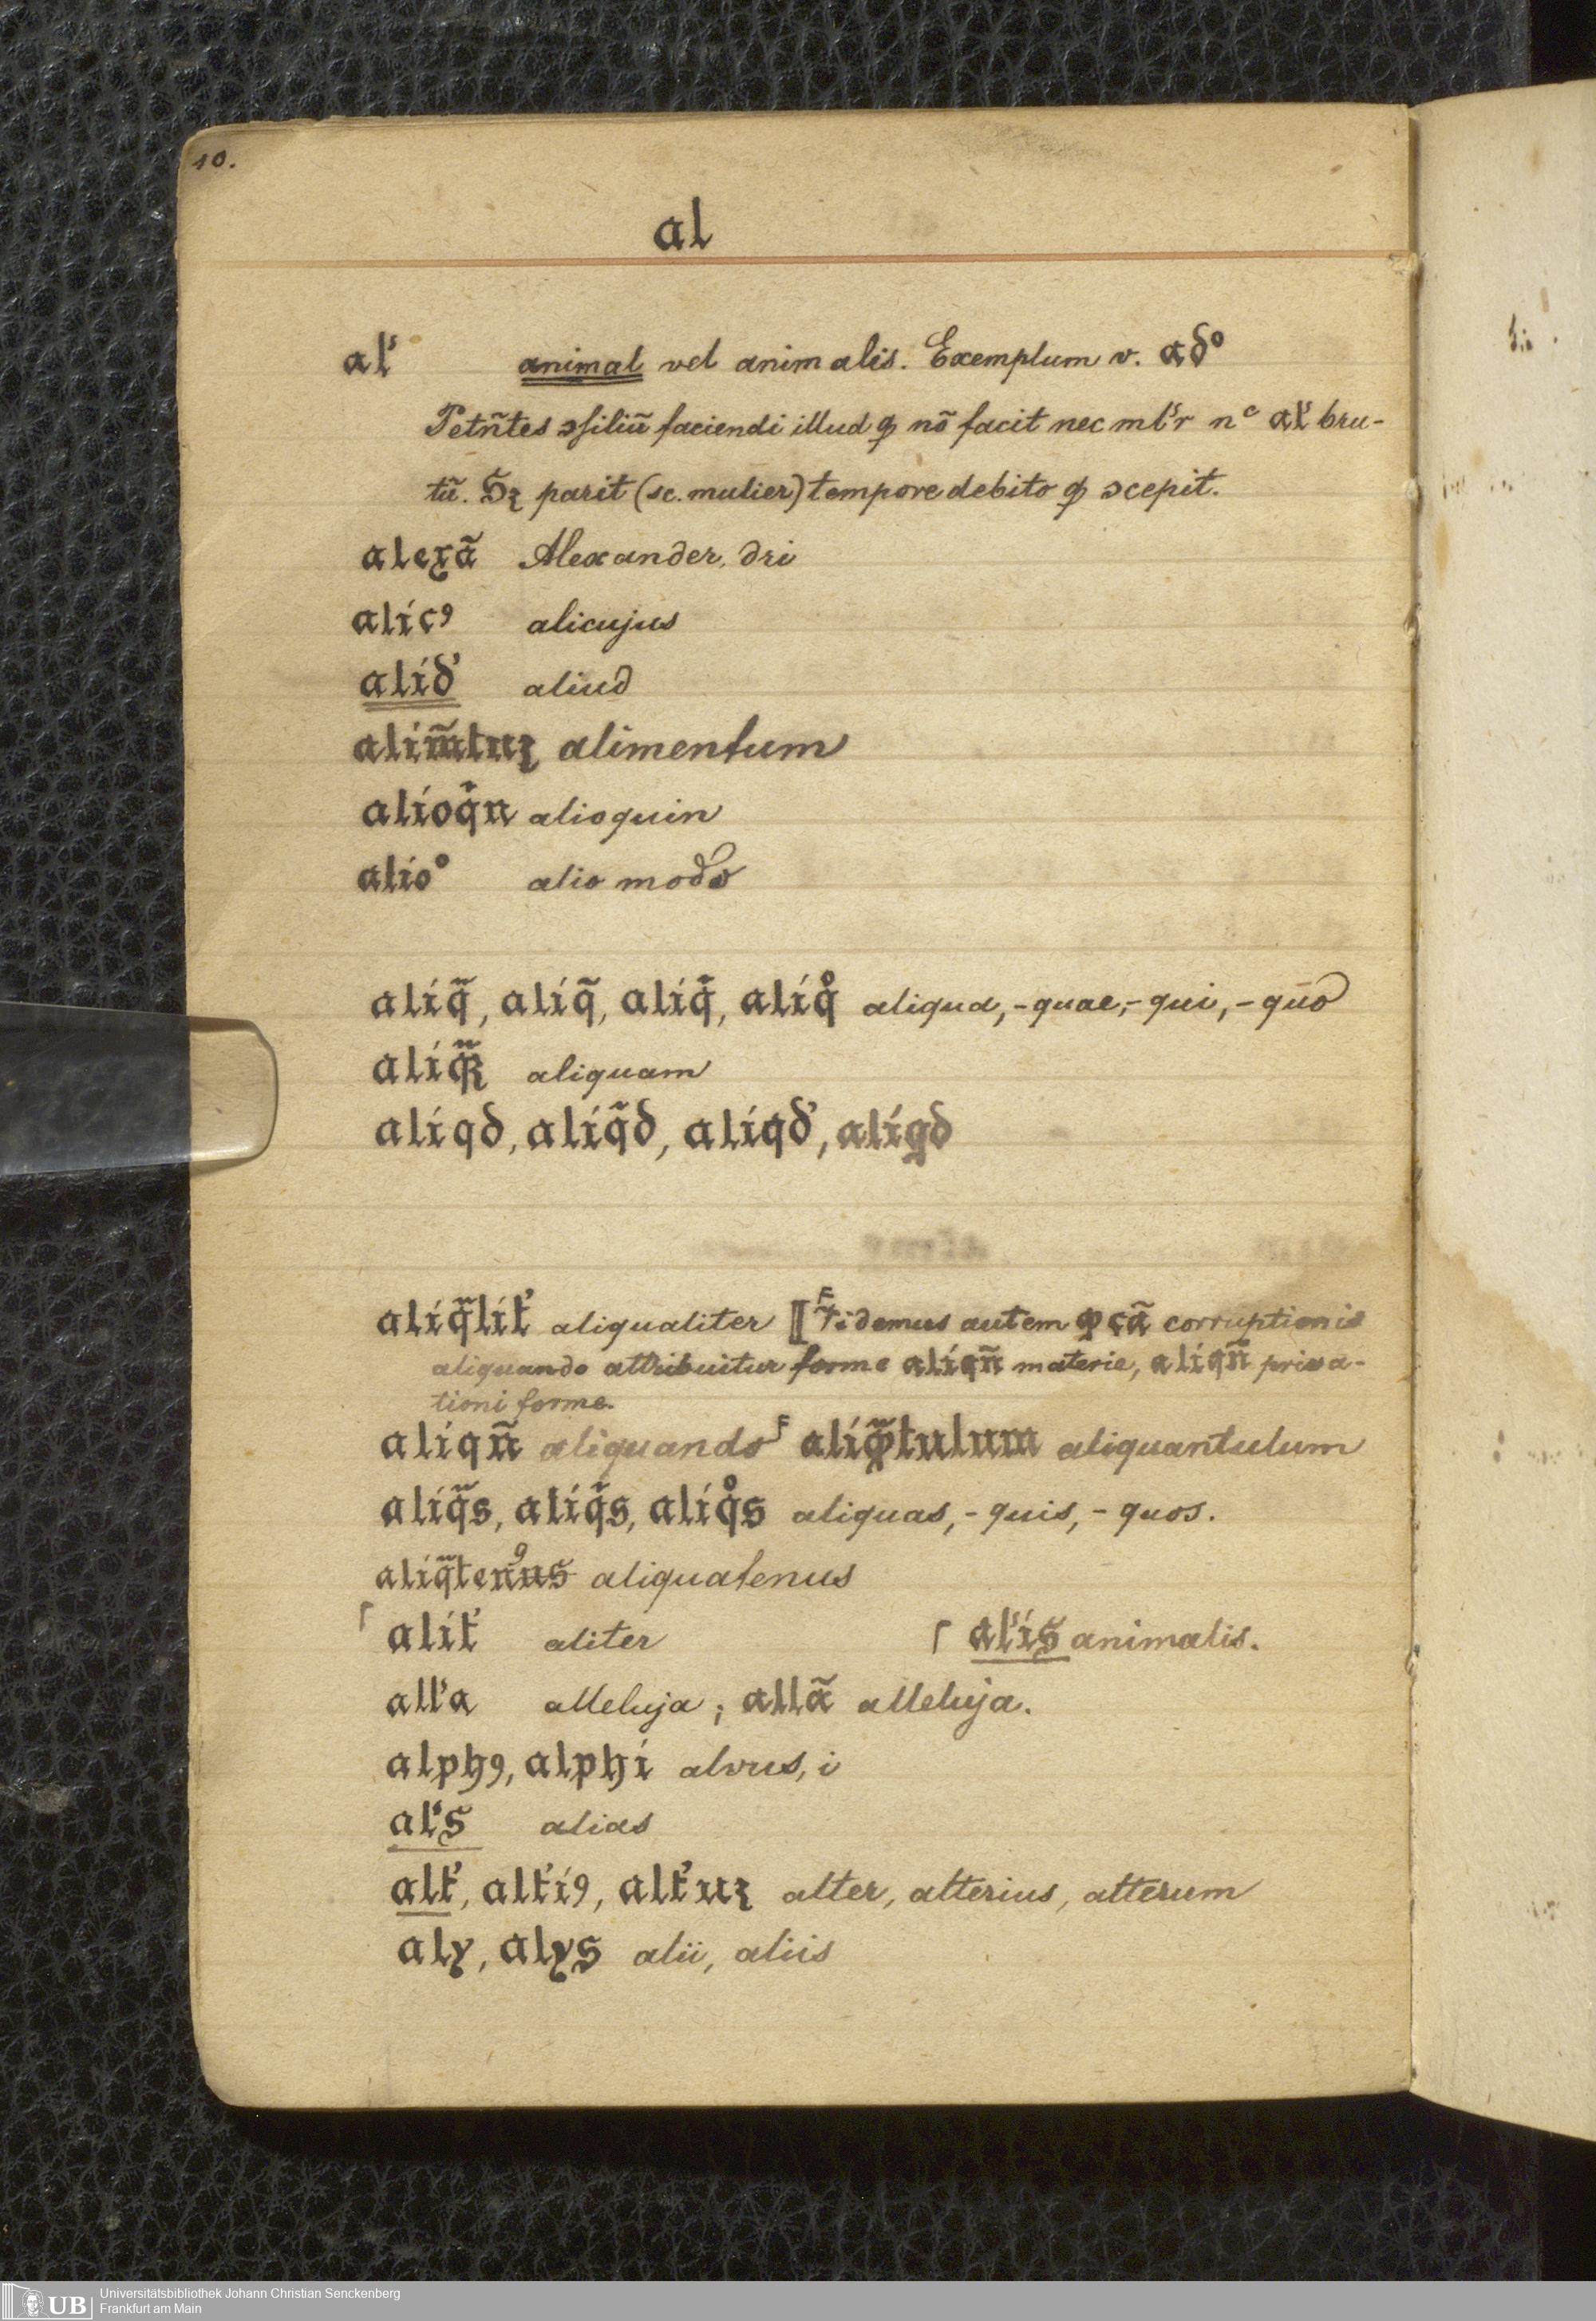 10.
al
al' animal vel animalis. Exemplum v. aδº
Petñtes ɔsiliũ faciendi illud ꝙ nõ facit nec ml'r nᶜ al' bru-
tũ. Sꝫ parit (sc. mulier) tempore debito ꝙ ɔcepit.
alexã Alexander, dri
alicꝰ alicujus
alid' aliud
alim̃tuꝫ alimentum
alioq̃n alioquin
alioº alio modo
aliq̃, aliq̃, aliq̃, aliq̊ aliqua, -quae, -qui, -quo
aliq̃ꝫ aliquam
aliqd, aliq̃d, aliqd', aliqd
aliq̃lit' aliqualiter Videmus autem ꝙ cã corruptionis
aliquando attribuitur forme aliqñ materie, aliqñ priva-
tioni forme.
aliqñ aliquando aliq̃tulum aliquantulum
aliq̃s, aliq̃s, aliq̊s aliquas, -quis, -quos.
aliq̃tenꝰus aliquatenus
alit' aliter al'is animalis.
all'a alleluja; allã alleluja.
alphꝰ, alphi alvus, i
al's alias
alt', alt'iꝰ, alt'uꝫ alter, alterius, alterum
aly, alys alii, aliis
UB Universitätsbibliothek Johann Christian Senckenberg
Frankfurt am Main